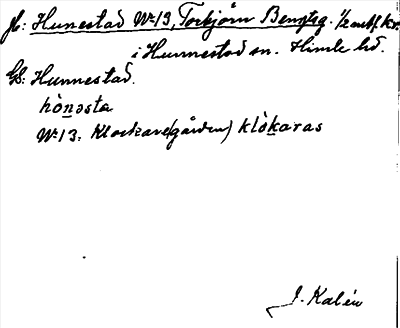 fl: Hunestad No 13, Torbjörn Bengtsg. 1/2 mtl. kr.
i Hunnestad sn. Himle hd.
GS: Hunnestad.
hònəsta
No 13: Klockare(gården) klòkaras
J. Kalén